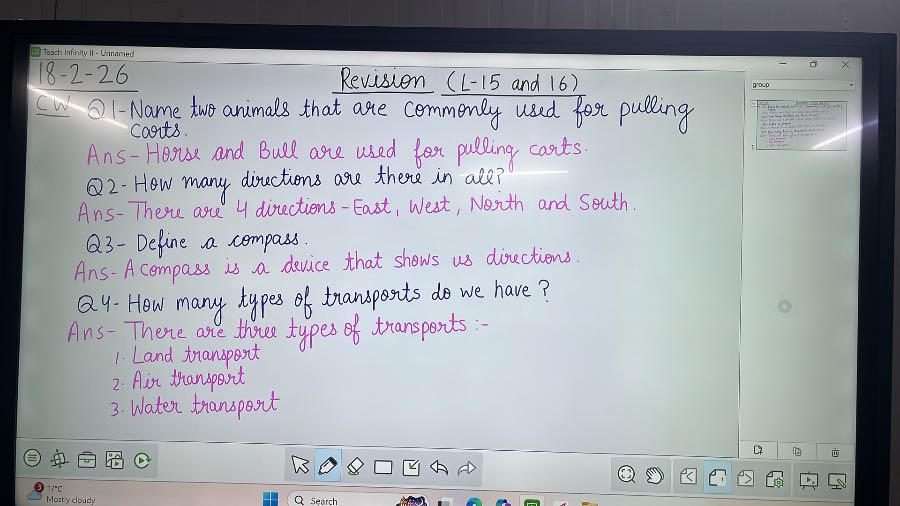 Teach Infinity II - Unnamed
18-2-26
Revision (L-15 and 16)
CW Q1-Name two animals that are commonly used for pulling
carts.
Ans-Horse and Bull are used for pulling carts.
Q2-How many directions are there in all?
Ans-There are 4 directions-East, West, North and South.
Q3-Define a compass.
Ans-A compass is a device that shows us directions.
Q4-How many types of transports do we have?
Ans-There are three types of transports:-
1. Land transport
2. Air transport
3. Water transport
group
3
17°C
Mostly cloudy
Search